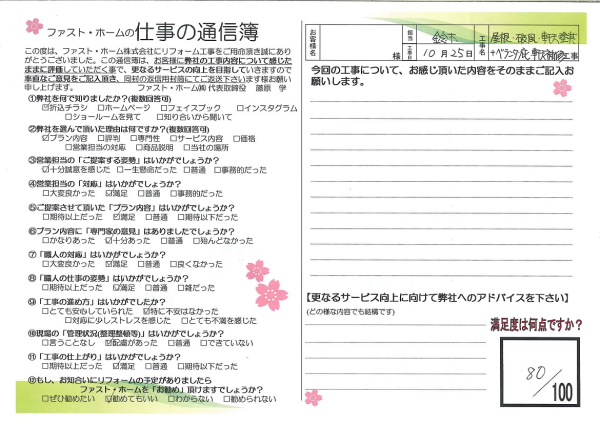 ファスト・ホームの仕事の通信簿
この度は、ファスト・ホーム株式会社にリフォーム工事をご用命頂き誠にあり
がとうございました。この通信簿は、お客様に弊社の工事内容について感じた
ままに評価していただく事で、更なるサービスの向上を目指していきますので
率直なご意見をご記入頂き、同封の返信用封筒にてご返送下さいます様お願い
申し上げます。 ファスト・ホーム㈱ 代表取締役 藤原 学
①弊社を何で知りましたか?(複数回答可)
☑折込チラシ □ホームページ □フェイスブック □インスタグラム
□ショールームを見て □知り合いから聞いて
②弊社を選んで頂いた理由は何ですか?(複数回答可)
☑プラン内容 □評判 □専門性 □サービス内容 □価格
□営業担当の対応 □商品説明 □当社の場所
③営業担当の「ご提案する姿勢」はいかがでしょうか?
☑十分誠意を感じた □一生懸命だった □普通 □事務的だった
④営業担当の「対応」はいかがでしょうか?
□大変良かった ☑満足 □普通 □事務的だった
⑤ご提案させて頂いた「プラン内容」はいかがでしょうか?
□期待以上だった ☑満足 □普通 □期待以下だった
⑥プラン内容に「専門家の意見」はありましたでしょうか?
□かなりあった ☑十分あった □普通 □殆んどなかった
⑦「職人の対応」はいかがでしょうか?
□大変良かった ☑満足 □普通 □良くなかった
⑧「職人の仕事の姿勢」はいかがでしょうか?
□期待以上だった ☑満足 □普通 □雑だった
⑨「工事の進め方」はいかがでしたか?
□とても安心していられた ☑特に不安はなかった
□対応に少しストレスを感じた □とても不満を感じた
⑩現場の「管理状況(整理整頓等)」はいかがでしょうか?
□言うことなし ☑配慮があった □普通 □できていない
⑪「工事の仕上がり」はいかがでしょうか?
□期待以上だった ☑満足 □普通 □期待以下だった
⑫もし、お知合いにリフォームの予定がありましたら
ファスト・ホームを「お勧め」頂けますでしょうか?
□ぜひ勧めたい ☑勧めてもいい □わからない □勧められない
お客様名 様
担当 鈴木
工事日 10月25日
工事名 屋根・破風・軒天塗装
軒天補修工事
今回の工事について、お感じ頂いた内容をそのままご記入お
願いします。
【更なるサービス向上に向けて弊社へのアドバイスを下さい】
(どの様な内容でも結構です)
満足度は何点ですか?
80/100